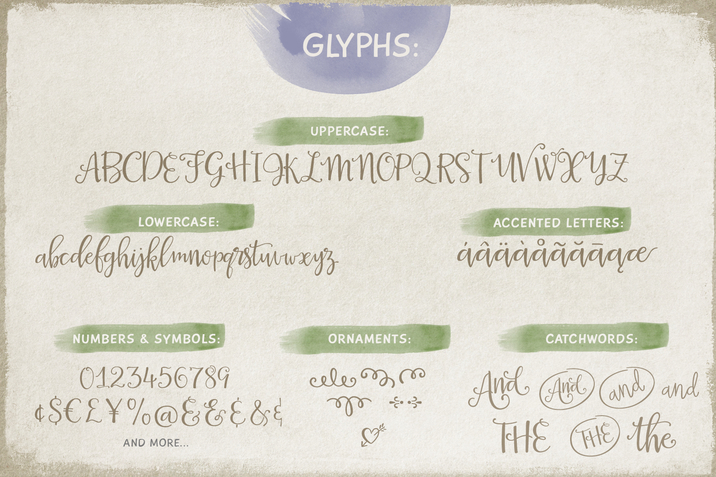 GLYPHS:
UPPERCASE:
ABCDEFGHIJKLMNOPQRSTUVWXYZ
LOWERCASE:
abcdefghijklmnopqrstuvwxyz
ACCENTED LETTERS:
áâäàåãăāąæ
NUMBERS & SYMBOLS:
0123456789
¢$€£¥%@&&&&&
AND MORE...
ORNAMENTS:
CATCHWORDS:
And And and and
THE THE the